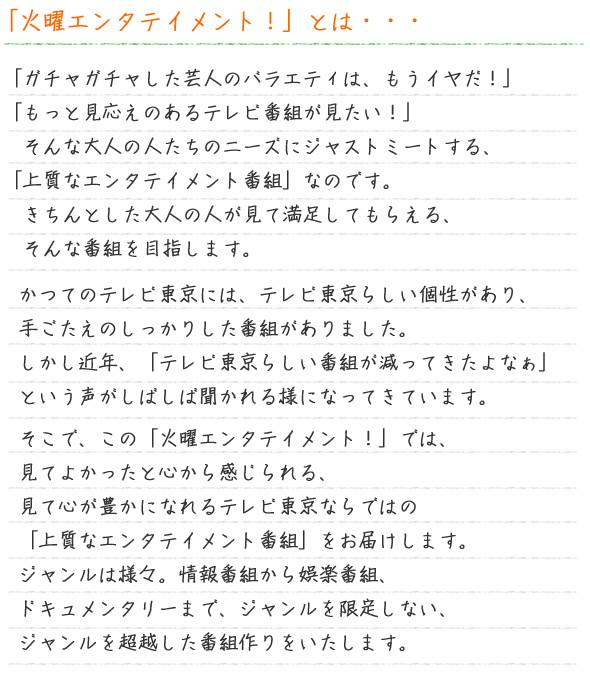 「火曜エンタテイメント！」とは・・・
「ガチャガチャした芸人のバラエティは、もうイヤだ！」
「もっと見応えのあるテレビ番組が見たい！」
そんな大人の人たちのニーズにジャストミートする、
「上質なエンタテイメント番組」なのです。
きちんとした大人の人が見て満足してもらえる、
そんな番組を目指します。
かつてのテレビ東京には、テレビ東京らしい個性があり、
手ごたえのしっかりした番組がありました。
しかし近年、「テレビ東京らしい番組が減ってきたよなぁ」
という声がしばしば聞かれる様になってきています。
そこで、この「火曜エンタテイメント！」では、
見てよかったと心から感じられる、
見て心が豊かになれるテレビ東京ならではの
「上質なエンタテイメント番組」をお届けします。
ジャンルは様々。情報番組から娯楽番組、
ドキュメンタリーまで、ジャンルを限定しない、
ジャンルを超越した番組作りをいたします。